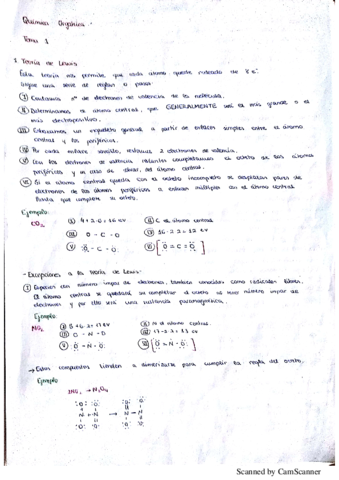 Química Orgánica.
Tema 1
1. Teoría de Lewis
Esta teoría nos permite que cada átomo quede rodeado de 8 e⁻.
Sigue una serie de reglas o pasos
I Contamos nº de electrones de valencia de la molécula.
II Determinamos el átomo central, que GENERALMENTE será el más grande o el
más electropositivo.
III Colocamos un esqueleto general a partir de enlaces simples entre el átomo
central y los periféricos.
IV Por cada enlace simple, restamos 2 electrones de valencia.
V Con los electrones de valencia restantes completamos el octeto de los átomos
periféricos y en caso de sobrar, del átomo central.
VI Si el átomo central queda con el octeto incompleto se desplazan pares de
electrones de los átomos periféricos a enlaces múltiples con el átomo central
hasta que complete su octeto.
Ejemplo:
CO₂ I 4+2·6=16 eV II C el átomo central
III O - C - O IV 16-2·2=12 eV
V :Ö - C - Ö: VI [ :Ö = C = Ö: ]
- Excepciones a la teoría de Lewis -
I Especies con número impar de electrones, también conocidos como radicales libres.
El átomo central se quedará sin completar el octeto al tener número impar de
electrones y por ello será una sustancia paramagnética.
Ejemplo:
NO₂ I 5+6·2=17 eV II N el átomo central.
III O - N - O IV 17-2·2=13 eV
V :Ö - N - Ö: VI [ :Ö = N - Ö: ]
→ Estos compuestos tienden a dimerizarse para cumplir la regla del octeto.
Ejemplo
2NO₂ → N₂O₄
Scanned by CamScanner